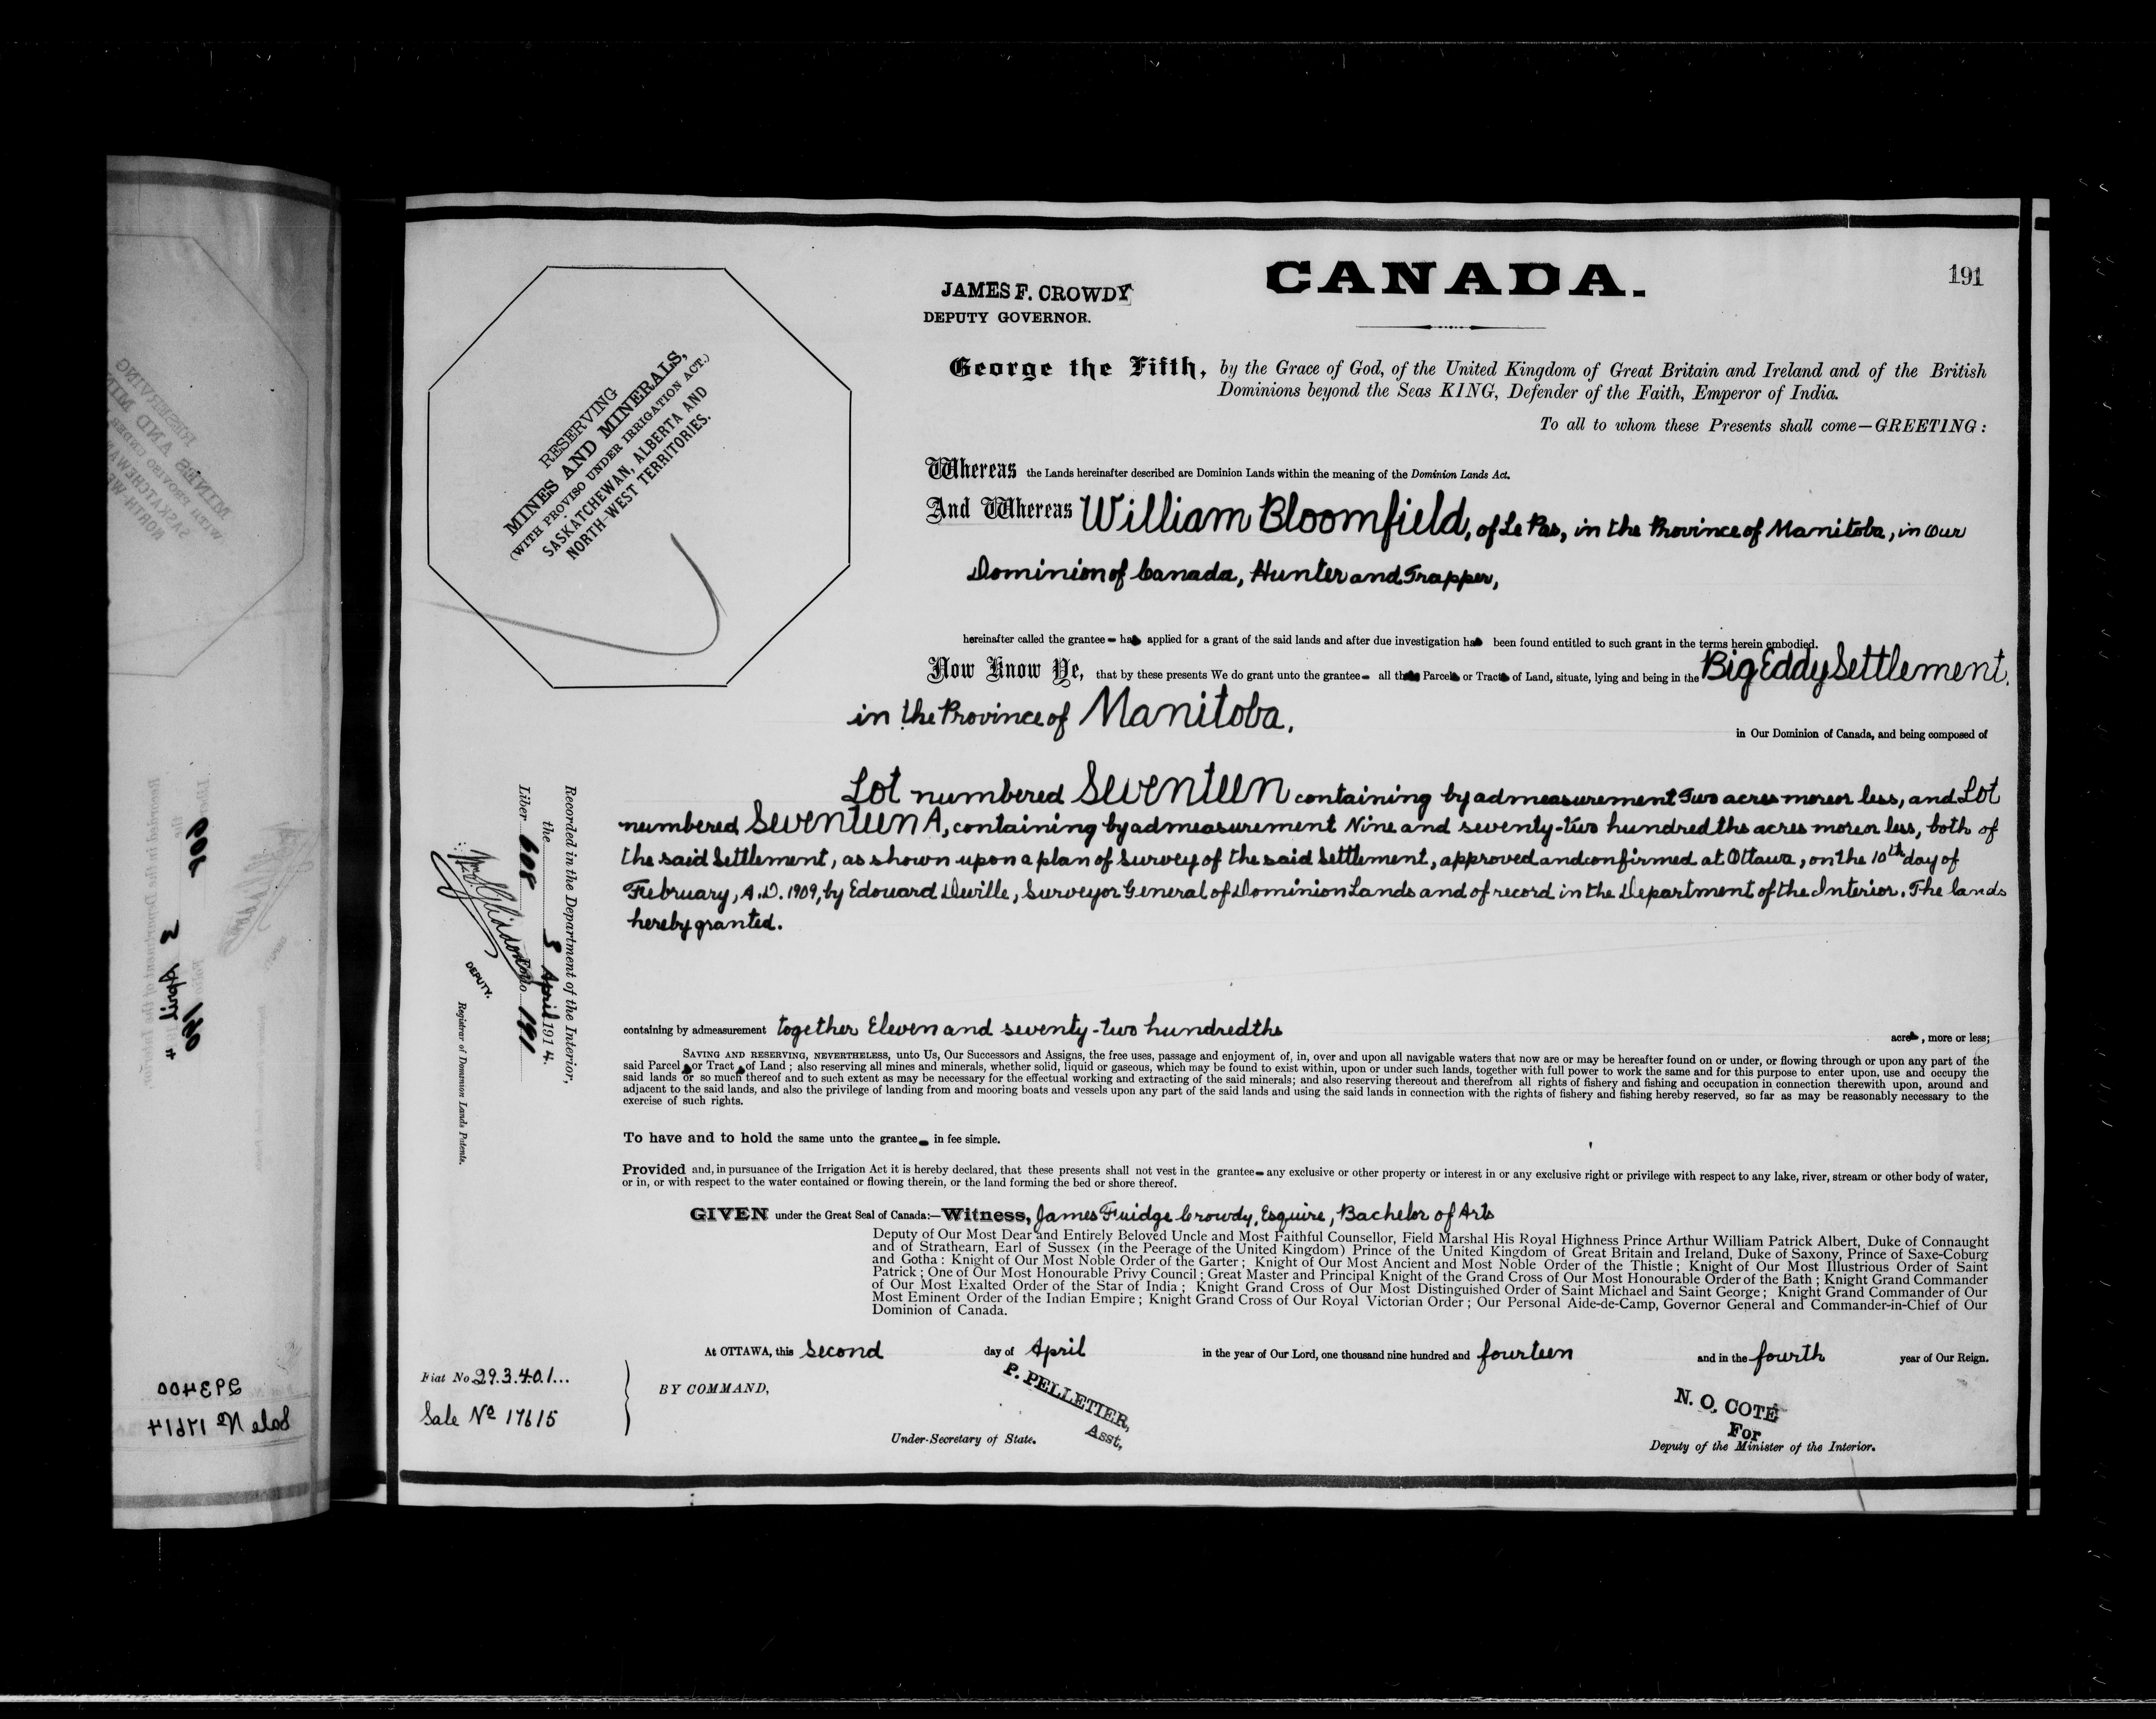 CANADA.
191
JAMES F. CROWDY
DEPUTY GOVERNOR.
RESERVING
MINES AND MINERALS,
(WITH PROVISO UNDER IRRIGATION ACT.)
SASKATCHEWAN, ALBERTA AND
NORTH-WEST TERRITORIES.
George the Fifth, by the Grace of God, of the United Kingdom of Great Britain and Ireland and of the British
Dominions beyond the Seas KING, Defender of the Faith, Emperor of India.
To all to whom these Presents shall come—GREETING:
Whereas the Lands hereinafter described are Dominion Lands within the meaning of the Dominion Lands Act.
And Whereas William Bloomfield, of Le Pas, in the Province of Manitoba, in Our
Dominion of Canada, Hunter and Trapper,
hereinafter called the grantee has applied for a grant of the said lands and after due investigation has been found entitled to such grant in the terms herein embodied.
Now Know Ye, that by these presents We do grant unto the grantee all those Parcels or Tracts of Land, situate, lying and being in the Big Eddy Settlement,
in the Province of Manitoba,
in Our Dominion of Canada, and being composed of
Lot numbered Seventeen containing by admeasurement Two acres more or less, and Lot
numbered Seventeen A, containing by admeasurement Nine and seventy-two hundredths acres more or less, both of
the said Settlement, as shown upon a plan of Survey of the said Settlement, approved and confirmed at Ottawa, on the 10th day of
February, A.D. 1909, by Edouard Deville, Surveyor General of Dominion Lands and of record in the Department of the Interior. The lands
hereby granted.
containing by admeasurement together Eleven and seventy-two hundredths acres, more or less;
SAVING AND RESERVING, NEVERTHELESS, unto Us, Our Successors and Assigns, the free uses, passage and enjoyment of, in, over and upon all navigable waters that now are or may be hereafter found on or under, or flowing through or upon any part of the
said Parcels or Tracts of Land; also reserving all mines and minerals, whether solid, liquid or gaseous, which may be found to exist within, upon or under such lands, together with full power to work the same and for this purpose to enter upon, use and occupy the
said lands or so much thereof and to such extent as may be necessary for the effectual working and extracting of the said minerals; and also reserving thereout and therefrom all rights of fishery and fishing and occupation in connection therewith upon, around and
adjacent to the said lands, and also the privilege of landing from and mooring boats and vessels upon any part of the said lands and using the said lands in connection with the rights of fishery and fishing hereby reserved, so far as may be reasonably necessary to the
exercise of such rights.
To have and to hold the same unto the grantee in fee simple.
Provided and, in pursuance of the Irrigation Act it is hereby declared, that these presents shall not vest in the grantee any exclusive or other property or interest in or any exclusive right or privilege with respect to any lake, river, stream or other body of water,
or in, or with respect to the water contained or flowing therein, or the land forming the bed or shore thereof.
GIVEN under the Great Seal of Canada:—Witness, James Fuidge Crowdy, Esquire, Bachelor of Arts
Deputy of Our Most Dear and Entirely Beloved Uncle and Most Faithful Counsellor, Field Marshal His Royal Highness Prince Arthur William Patrick Albert, Duke of Connaught
and of Strathearn, Earl of Sussex (in the Peerage of the United Kingdom) Prince of the United Kingdom of Great Britain and Ireland, Duke of Saxony, Prince of Saxe-Coburg
and Gotha: Knight of Our Most Noble Order of the Garter; Knight of Our Most Ancient and Most Noble Order of the Thistle; Knight of Our Most Illustrious Order of Saint
Patrick; One of Our Most Honourable Privy Council; Great Master and Principal Knight of the Grand Cross of Our Most Honourable Order of the Bath; Knight Grand Commander
of Our Most Exalted Order of the Star of India; Knight Grand Cross of Our Most Distinguished Order of Saint Michael and Saint George; Knight Grand Commander of Our
Most Eminent Order of the Indian Empire; Knight Grand Cross of Our Royal Victorian Order; Our Personal Aide-de-Camp, Governor General and Commander-in-Chief of Our
Dominion of Canada.
At OTTAWA, this second day of April in the year of Our Lord, one thousand nine hundred and fourteen and in the fourth year of Our Reign.
Fiat No 293401
Sale No 17615
BY COMMAND,
P. PELLETIER,
Asst,
Under-Secretary of State.
N. O. COTÉ
For
Deputy of the Minister of the Interior.
Recorded in the Department of the Interior,
the 3 April 1914.
Liber 608 Folio 191
DEPUTY.
Registrar of Dominion Lands Patents.
293400
Sale No 17614